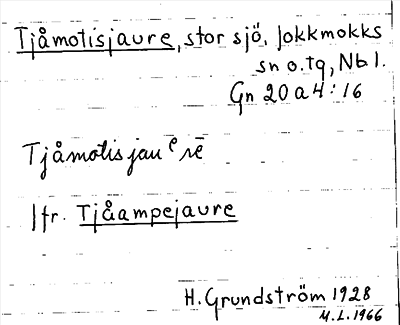 Tjåmotisjaure, stor sjö, Jokkmokks
sn o. tg, Nb l.
Gn 20 a 4 : 16
Tjåmotisjauᵉrē
Jfr. Tjåampejaure
H. Grundström 1928
M.L. 1966